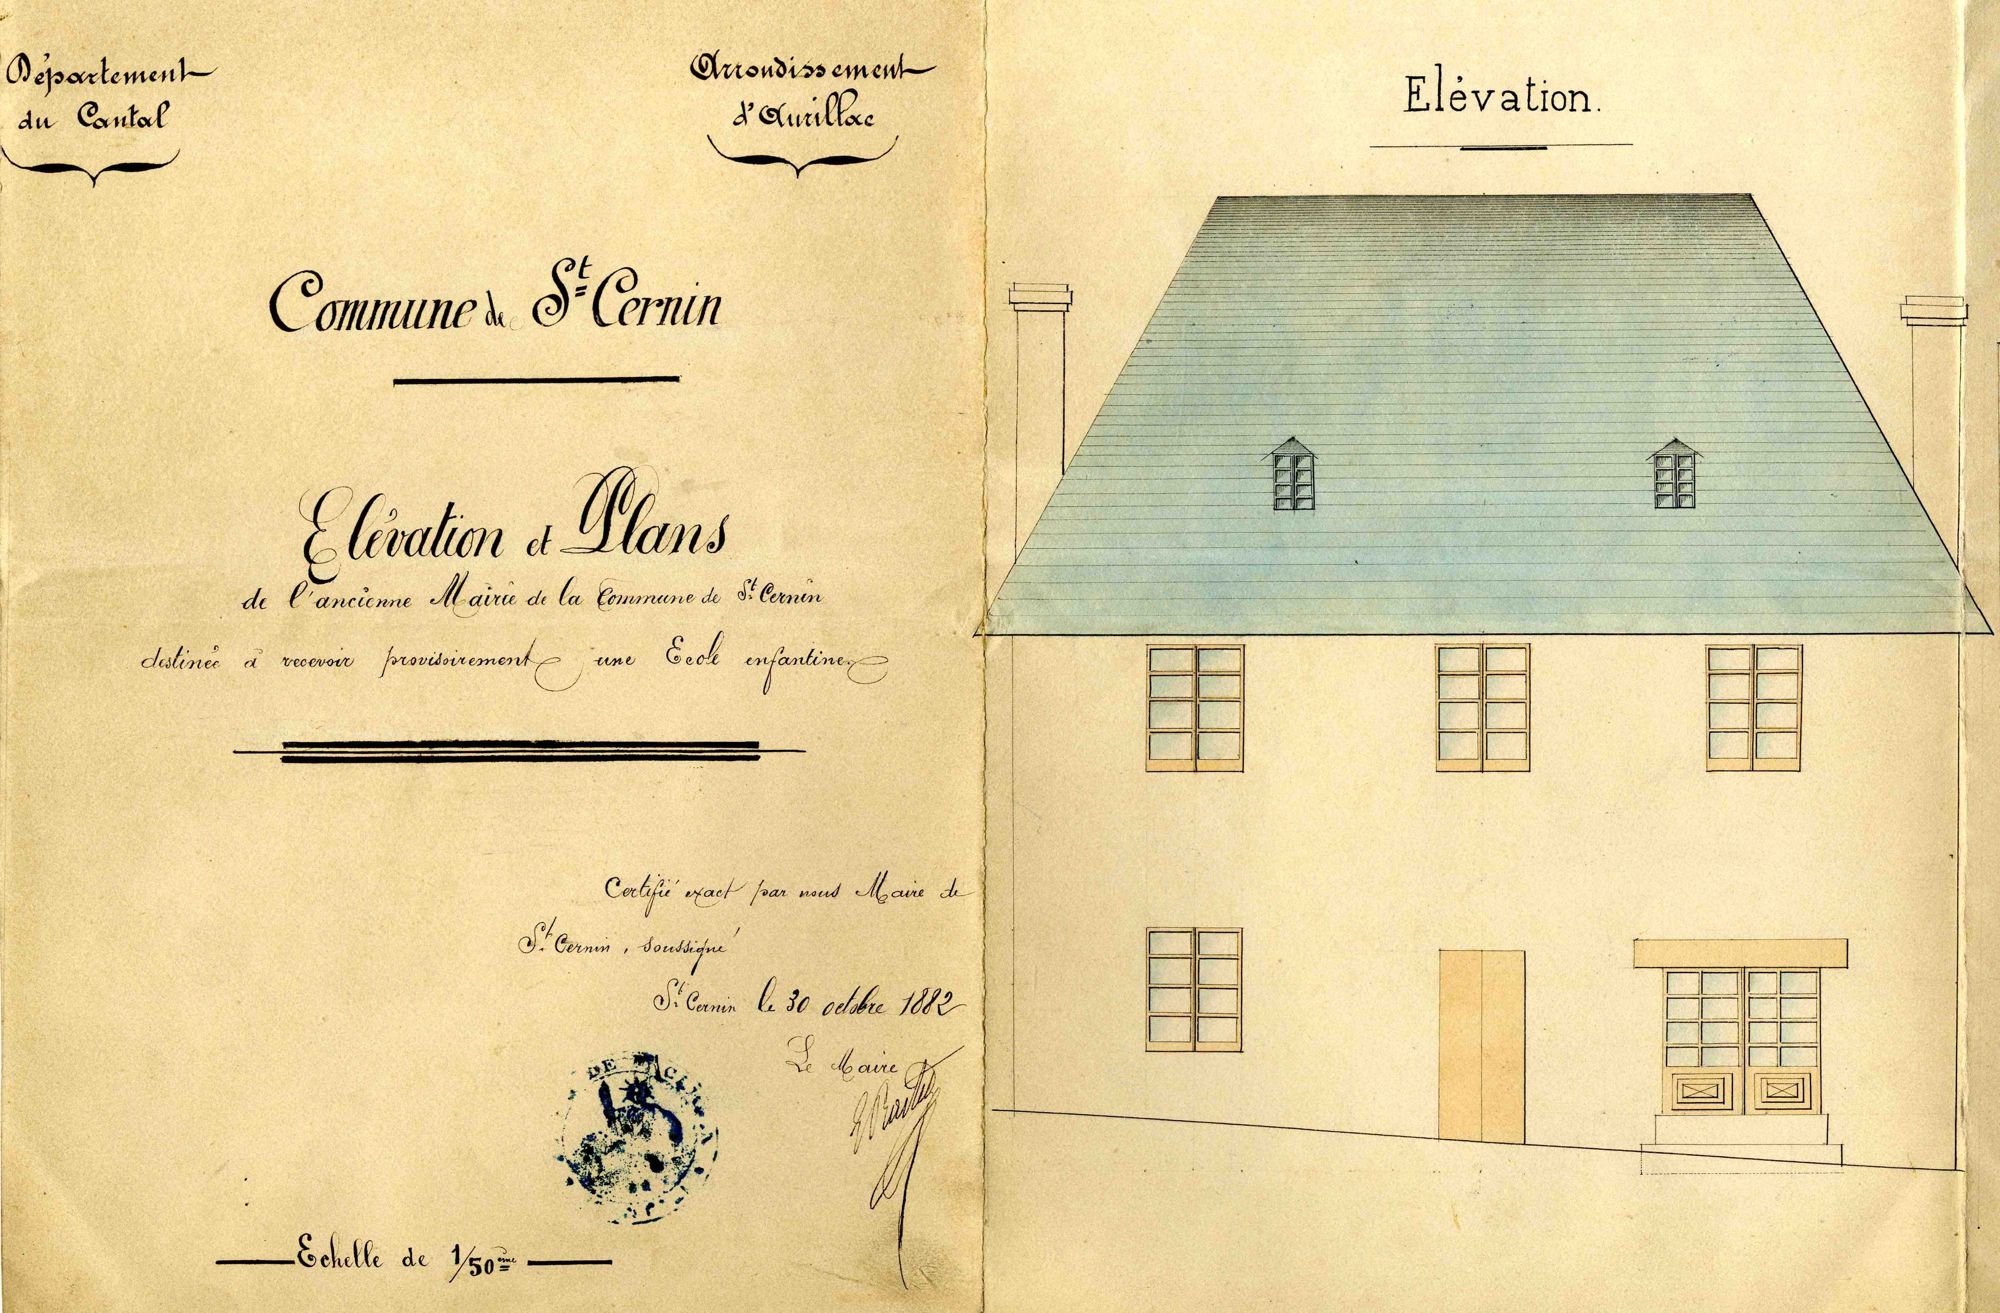 Département
du Cantal
Arrondissement
d'Aurillac
Commune de St Cernin
Elévation et Plans
de l'ancienne Mairie de la Commune de St Cernin
destinée à recevoir provisoirement une Ecole enfantine
Certifié exact par nous Maire de
St Cernin, soussigné
St Cernin le 30 octobre 1882
Le Maire
DE
Echelle de 1/50ème
Elévation.